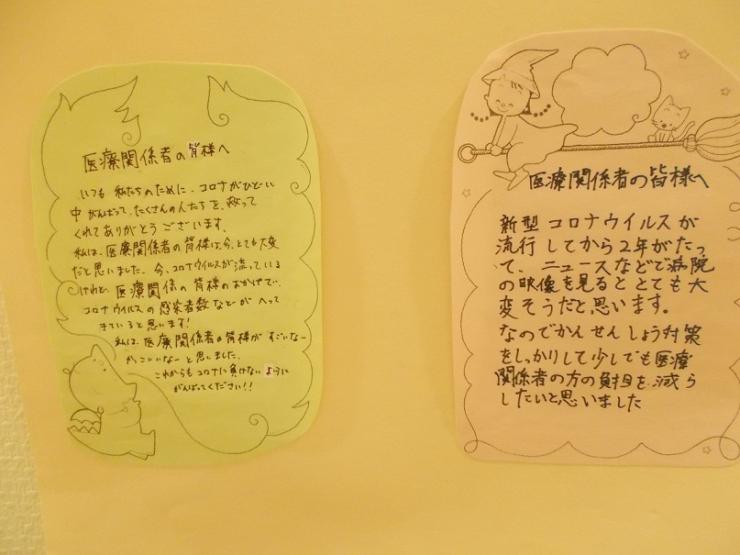 医療関係者の皆様へ
いつも 私たちのために、コロナがひどい
中がんばって、たくさんの人たちを、救って
くれてありがとうございます。
私は、医療関係者の皆様は、今、とても大変
だと思いました。今、コロナウイルスが流っている
けれど、医療関係の皆様のおかげで、
コロナウイルスの感染者数などが へって
きていると思います!
私は、医療関係者の皆様が すごいなー
かっこいいなーと思いました。
これからもコロナに負けない ように
がんばってください!!
医療関係者の皆様へ
新型コロナウイルスが
流行してから2年がたっ
て、ニュースなどで病院
の映像を見るととても大
変そうだと思います。
なのでかんせんしょう対策
をしっかりして少しでも医療
関係者の方の負担を減ら
したいと思いました